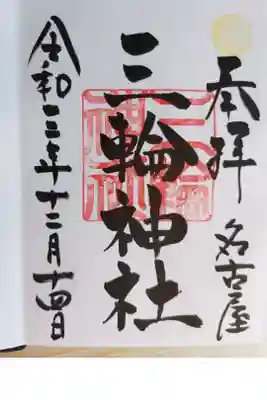 奉拝 名古屋
三輪神社
令和三年十二月十四日